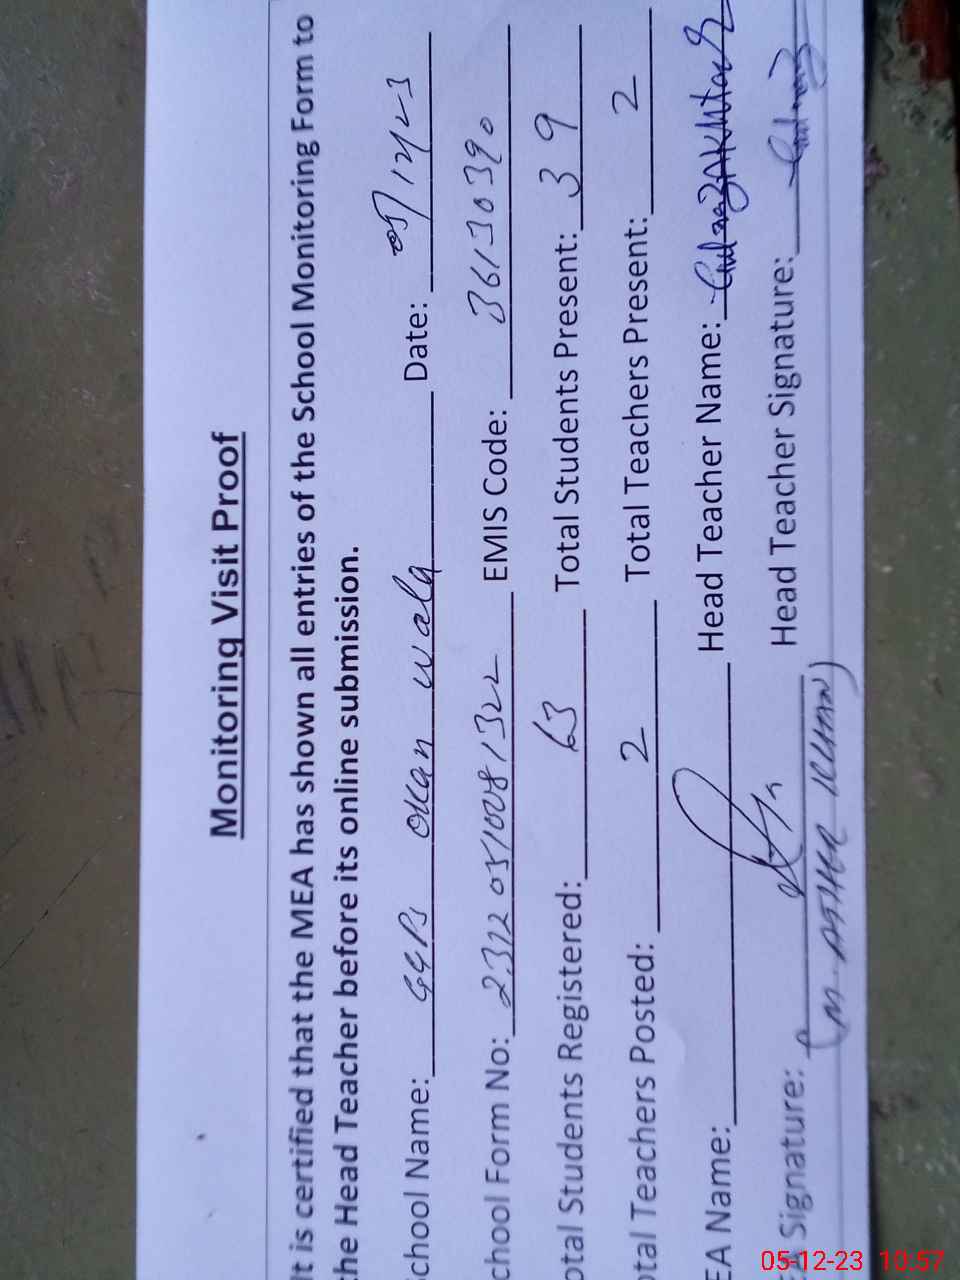 Monitoring Visit Proof
It is certified that the MEA has shown all entries of the School Monitoring Form to
the Head Teacher before its online submission.
chool Name: GGPS Okan wala Date: 05/12/23
chool Form No: 23120510081322 EMIS Code: 36130390
otal Students Registered: 63 Total Students Present: 39
otal Teachers Posted: 2 Total Teachers Present: 2
EA Name: Head Teacher Name: Gulnaz AKhtar
A Signature: Head Teacher Signature: Gulnaz
(M.
05-12-23 10:57